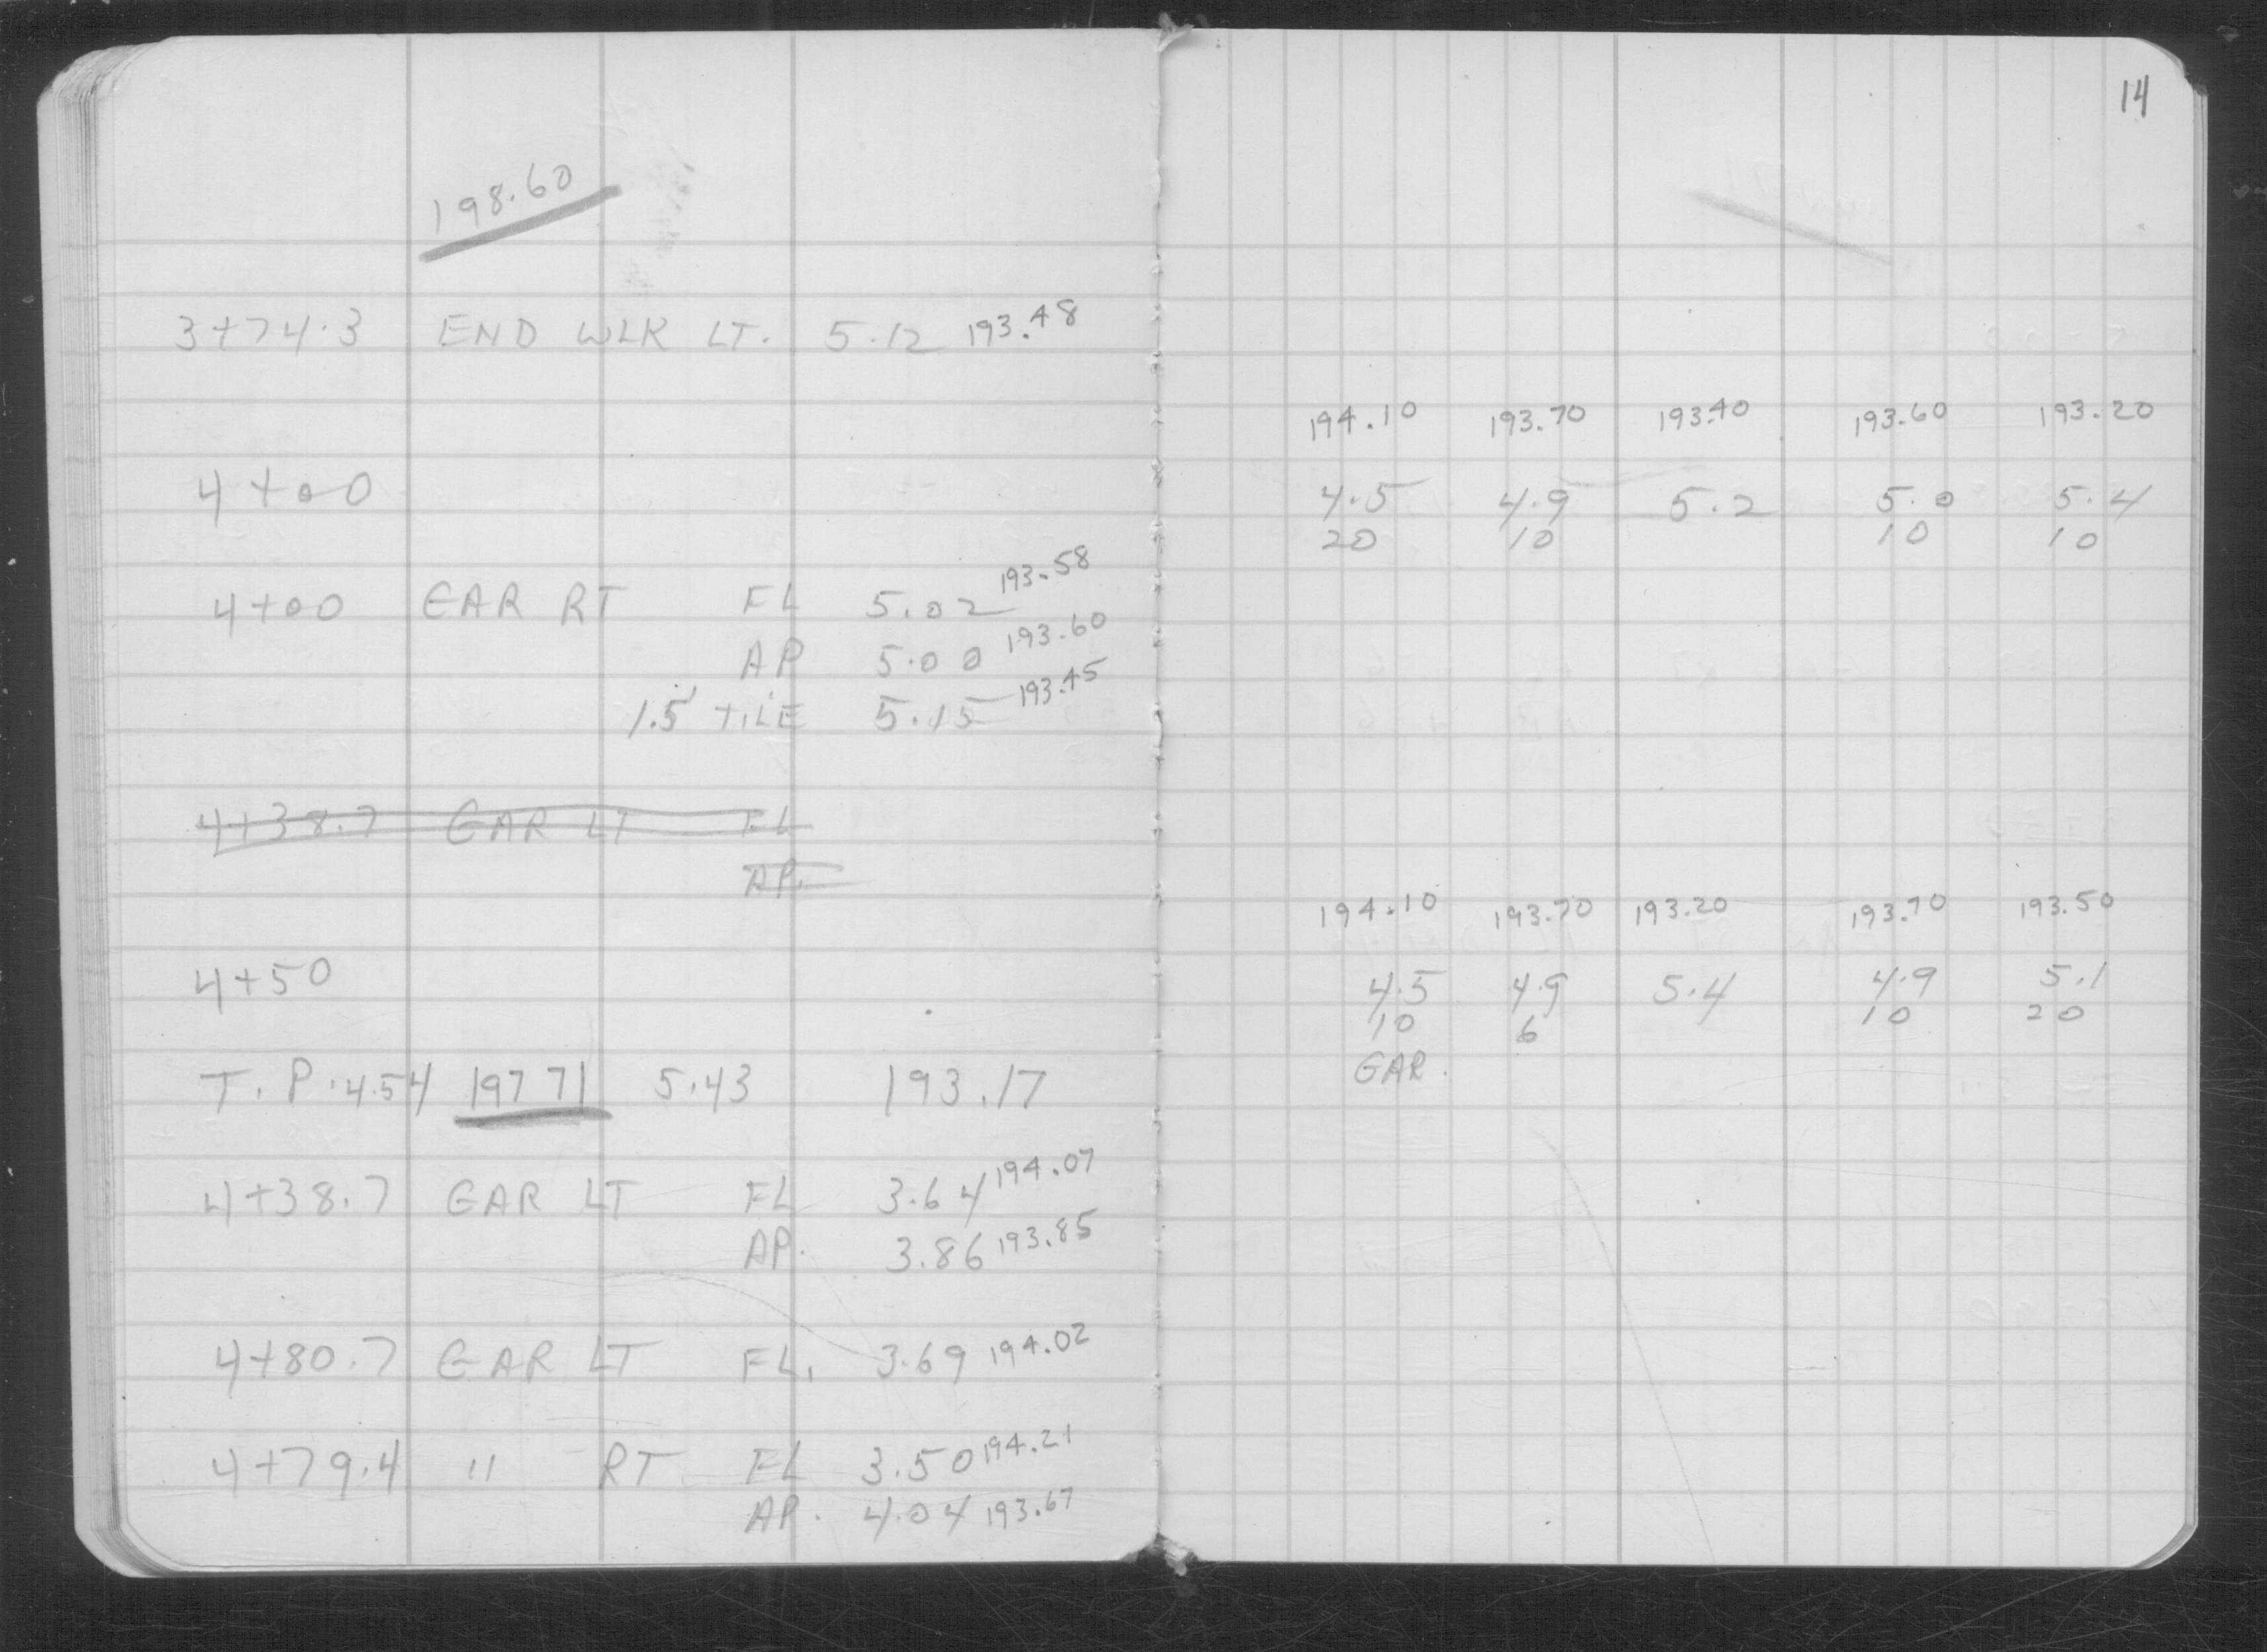 198.60
3+74.3 END WLK LT. 5.12 193.48
4+00
4+00 GAR RT FL 5.02 193.58
AP 5.00 193.60
1.5' TILE 5.15 193.45
4+38.7 GAR LT FL
AP.
4+50
T.P. 4.54 197 71 5.43 193.17
4+38.7 GAR LT FL 3.64 194.07
AP. 3.86 193.85
4+80.7 GAR LT FL. 3.69 194.02
4+79.4 " RT. FL 3.50 194.21
AP. 4.04 193.67
14
194.10 193.70 193.40 193.60 193.20
4.5 4.9 5.2 5.0 5.4
20 10 10 10
194.10 193.70 193.20 193.70 193.50
4.5 4.9 5.4 4.9 5.1
10 6 10 20
GAR.